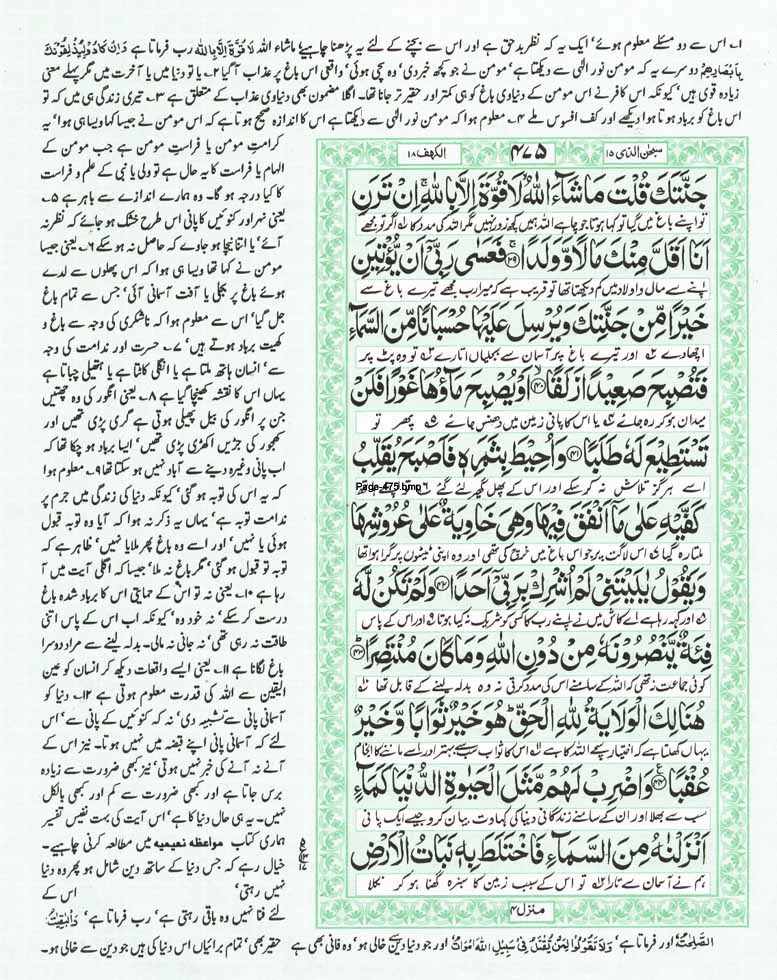 ۱۔ اس سے دو مسئلے معلوم ہوئے' ایک یہ کہ نظربد حق ہے اور اس سے بچنے کے لئے یہ پڑھنا چاہیئے ماشاء اللہ لا قوۃ الا باللہ رب فرماتا ہے وان کادو لیذلقونک
بابصارھم دوسرے یہ کہ مومن نور الٰہی سے دیکھتا ہے' مومن نے جو کچھ خبر دی' وہ سچی ہوئی' واقعی اس باغ پر عذاب آگیا ۲۔ یا تو دنیا میں یا آخرت میں مگر پہلے معنی
زیادہ قوی ہیں' کیونکہ اس کافر نے اس مومن کے دنیاوی باغ کو ہی کمتر اور حقیر تر جانا تھا۔ اگلا مضمون بھی دنیاوی عذاب کے متعلق ہے ۳۔ تیری زندگی ہی میں کہ تو
اس باغ کو برباد ہوتا ہوا دیکھے اور کف افسوس ملے ۴۔ معلوم ہوا کہ مومن نور الٰہی سے دیکھتا ہے اس کا اندازہ صحیح ہوتا ہے کہ اس مومن نے جیسا کہا ویسا ہی ہوا' یہ
کرامت مومن یا فراست مومن ہے جب مومن کے
الہام یا فراست کا یہ حال ہے تو ولی یا نبی کے علم و فراست
کا کیا درجہ ہو گا۔ وہ ہمارے اندازے سے باہر ہے ۵۔
یعنی نہر اور کنوئیں کا پانی اس طرح خشک ہو جائے کہ نظر نہ
آئے' یا اتنا نیچا ہو جاوے کہ حاصل نہ ہو سکے ۶۔ یعنی جیسا
مومن نے کہا تھا ویسا ہی ہوا کہ اس پھلوں سے لدے
ہوئے باغ پر بجلی یا آفت آسمانی آئی' جس سے تمام باغ
جل گیا' اس سے معلوم ہوا کہ ناشکری کی وجہ سے باغ و
کھیت برباد ہوتے ہیں' ۷۔ حسرت اور ندامت کی وجہ
سے' انسان ہاتھ ملتا ہے یا انگلی کاٹتا ہے یا ہتھیلی چباتا ہے
یہاں اس کا نقشہ کھینچا گیا ہے ۸۔ یعنی انگور کی وہ چھتیں
جن پر انگور کی بیل پھیلی ہوتی ہے گری پڑی تھیں اور
کھجور کی جڑیں اکھڑی پڑی تھیں' ایسا برباد ہو چکا تھا کہ
اب پانی وغیرہ دینے سے آباد نہیں ہو سکتا تھا ۹۔ معلوم ہوا
کہ یہ اس کی توبہ ہو گئی' کیونکہ دنیا کی زندگی میں جرم پر
ندامت توبہ ہے' یہاں یہ ذکر نہ ہوا کہ آیا وہ توبہ قبول
ہوئی یا نہیں' اور اسے وہ باغ پھر ملا یا نہیں' ظاہر ہے کہ
توبہ تو قبول ہو گئی' مگر باغ نہ ملا' جیسا کہ اگلی آیت میں آ
رہا ہے ۱۰۔ یعنی نہ تو اس کے حمایتی اس کا برباد شدہ باغ
درست کر سکے' نہ خود وہ' کیونکہ اب اس کے پاس اتنی
طاقت نہ رہی تھی' نہ جانی نہ مالی۔ بدلہ لینے سے مراد دوسرا
باغ لگانا ہے ۱۱۔ یعنی ایسے واقعات دیکھ کر انسان کو عین
الیقین سے اللہ کی قدرت معلوم ہوتی ہے ۱۲۔ دنیا کو
آسمانی پانی سے تشبیہ دی' نہ کہ کنوئیں کے پانی سے' اس
لئے کہ آسمانی پانی اپنے قبضہ میں نہیں ہوتا۔ نیز اس کے
آنے نہ آنے کی خبر نہیں ہوتی' نیز کبھی ضرورت سے زیادہ
برس جاتا ہے اور کبھی ضرورت سے کم اور کبھی بالکل
نہیں۔ یہ ہی حال دنیا کا ہے' اس آیت کی بہت نفیس تفسیر
ہماری کتاب مواعظہ نعیمیہ میں مطالعہ کرنی چاہیے۔
خیال رہے کہ جس دنیا کے ساتھ دین شامل ہو پھر وہ دنیا
نہیں رہتی' اس کے
لئے فنا نہیں وہ باقی رہتی ہے' رب فرماتا ہے' والبقیٰت
الصٰلحٰت' اور فرماتا ہے' ولا تقولوا لمن یقتل فی سبیل اللہ اموات' اور جو دنیا دین سے خالی ہو' وہ فانی بھی ہے حقیر بھی' تمام برائیاں اس دنیا کی ہیں جو دین سے خالی ہو۔
سبحٰن الذی ۱۵ ۴۷۵ الکھف ۱۸
جَنَّتَكَ قُلْتَ مَا شَاءَ اللّٰهُ لَا قُوَّةَ اِلَّا بِاللّٰهِ اِنْ تَرَنِ
تو اپنے باغ میں گیا تو کہا ہوتا جو چاہے اللہ ہمیں کچھ زور نہیں مگر اللہ کی مدد کا اگر تو مجھے
اَنَا اَقَلَّ مِنْكَ مَالًا وَّوَلَدًا ۳۹ فَعَسٰى رَبِّيْٓ اَنْ يُّؤْتِيَنِ
اپنے سے مال و اولاد میں کم دیکھتا تھا تو قریب ہے کہ میرا رب مجھے تیرے باغ سے
خَيْرًا مِّنْ جَنَّتِكَ وَيُرْسِلَ عَلَيْهَا حُسْبَانًا مِّنَ السَّمَآءِ
اچھا دے اور تیرے باغ پر آسمان سے بجلیاں اتارے تو وہ پٹ پر
فَتُصْبِحَ صَعِيْدًا زَلَقًا ۴۰ اَوْ يُصْبِحَ مَآؤُهَا غَوْرًا فَلَنْ
میدان ہو کر رہ جائے یا اس کا پانی زمین میں دھنس جائے پھر تو
تَسْتَطِيْعَ لَهٗ طَلَبًا ۴۱ وَاُحِيْطَ بِثَمَرِهٖ فَاَصْبَحَ يُقَلِّبُ
اسے ہرگز تلاش نہ کر سکے اور اس کے پھل گھیر لئے گئے
Page-475.bmp
كَفَّيْهِ عَلٰى مَآ اَنْفَقَ فِيْهَا وَهِيَ خَاوِيَةٌ عَلٰى عُرُوْشِهَا
ملتا رہ گیا اس لاگت پر جو اس باغ میں خرچ کی تھی اور وہ اپنی ٹٹیوں پر گرا ہوا تھا
وَيَقُوْلُ يٰلَيْتَنِيْ لَمْ اُشْرِكْ بِرَبِّيْٓ اَحَدًا ۴۲ وَلَمْ تَكُنْ لَّهٗ
اور کہہ رہا ہے اے کاش میں نے اپنے رب کا کسی کو شریک نہ کیا ہوتا اور اس کے پاس
فِئَةٌ يَّنْصُرُوْنَهٗ مِنْ دُوْنِ اللّٰهِ وَمَا كَانَ مُنْتَصِرًا ۴۳
کوئی جماعت نہ تھی کہ اللہ کے سامنے اس کی مدد کرتی نہ وہ بدلہ لینے کے قابل تھا
هُنَالِكَ الْوَلَايَةُ لِلّٰهِ الْحَقِّ هُوَ خَيْرٌ ثَوَابًا وَّخَيْرٌ
یہاں کھلتا ہے کہ اختیار سچے اللہ کا ہے اس کا ثواب سب سے بہتر اور اسے ماننے کا انجام
عُقْبًا ۴۴ وَاضْرِبْ لَهُمْ مَّثَلَ الْحَيٰوةِ الدُّنْيَا كَمَآءٍ
سب سے بھلا اور ان کے سامنے زندگانی دنیا کی کہاوت بیان کرو جیسے ایک پانی
اَنْزَلْنٰهُ مِنَ السَّمَآءِ فَاخْتَلَطَ بِهٖ نَبَاتُ الْاَرْضِ
ہم نے آسمان سے اتارا تو اس کے سبب زمین کا سبزہ گھنا ہو کر نکلا
منزل ۴